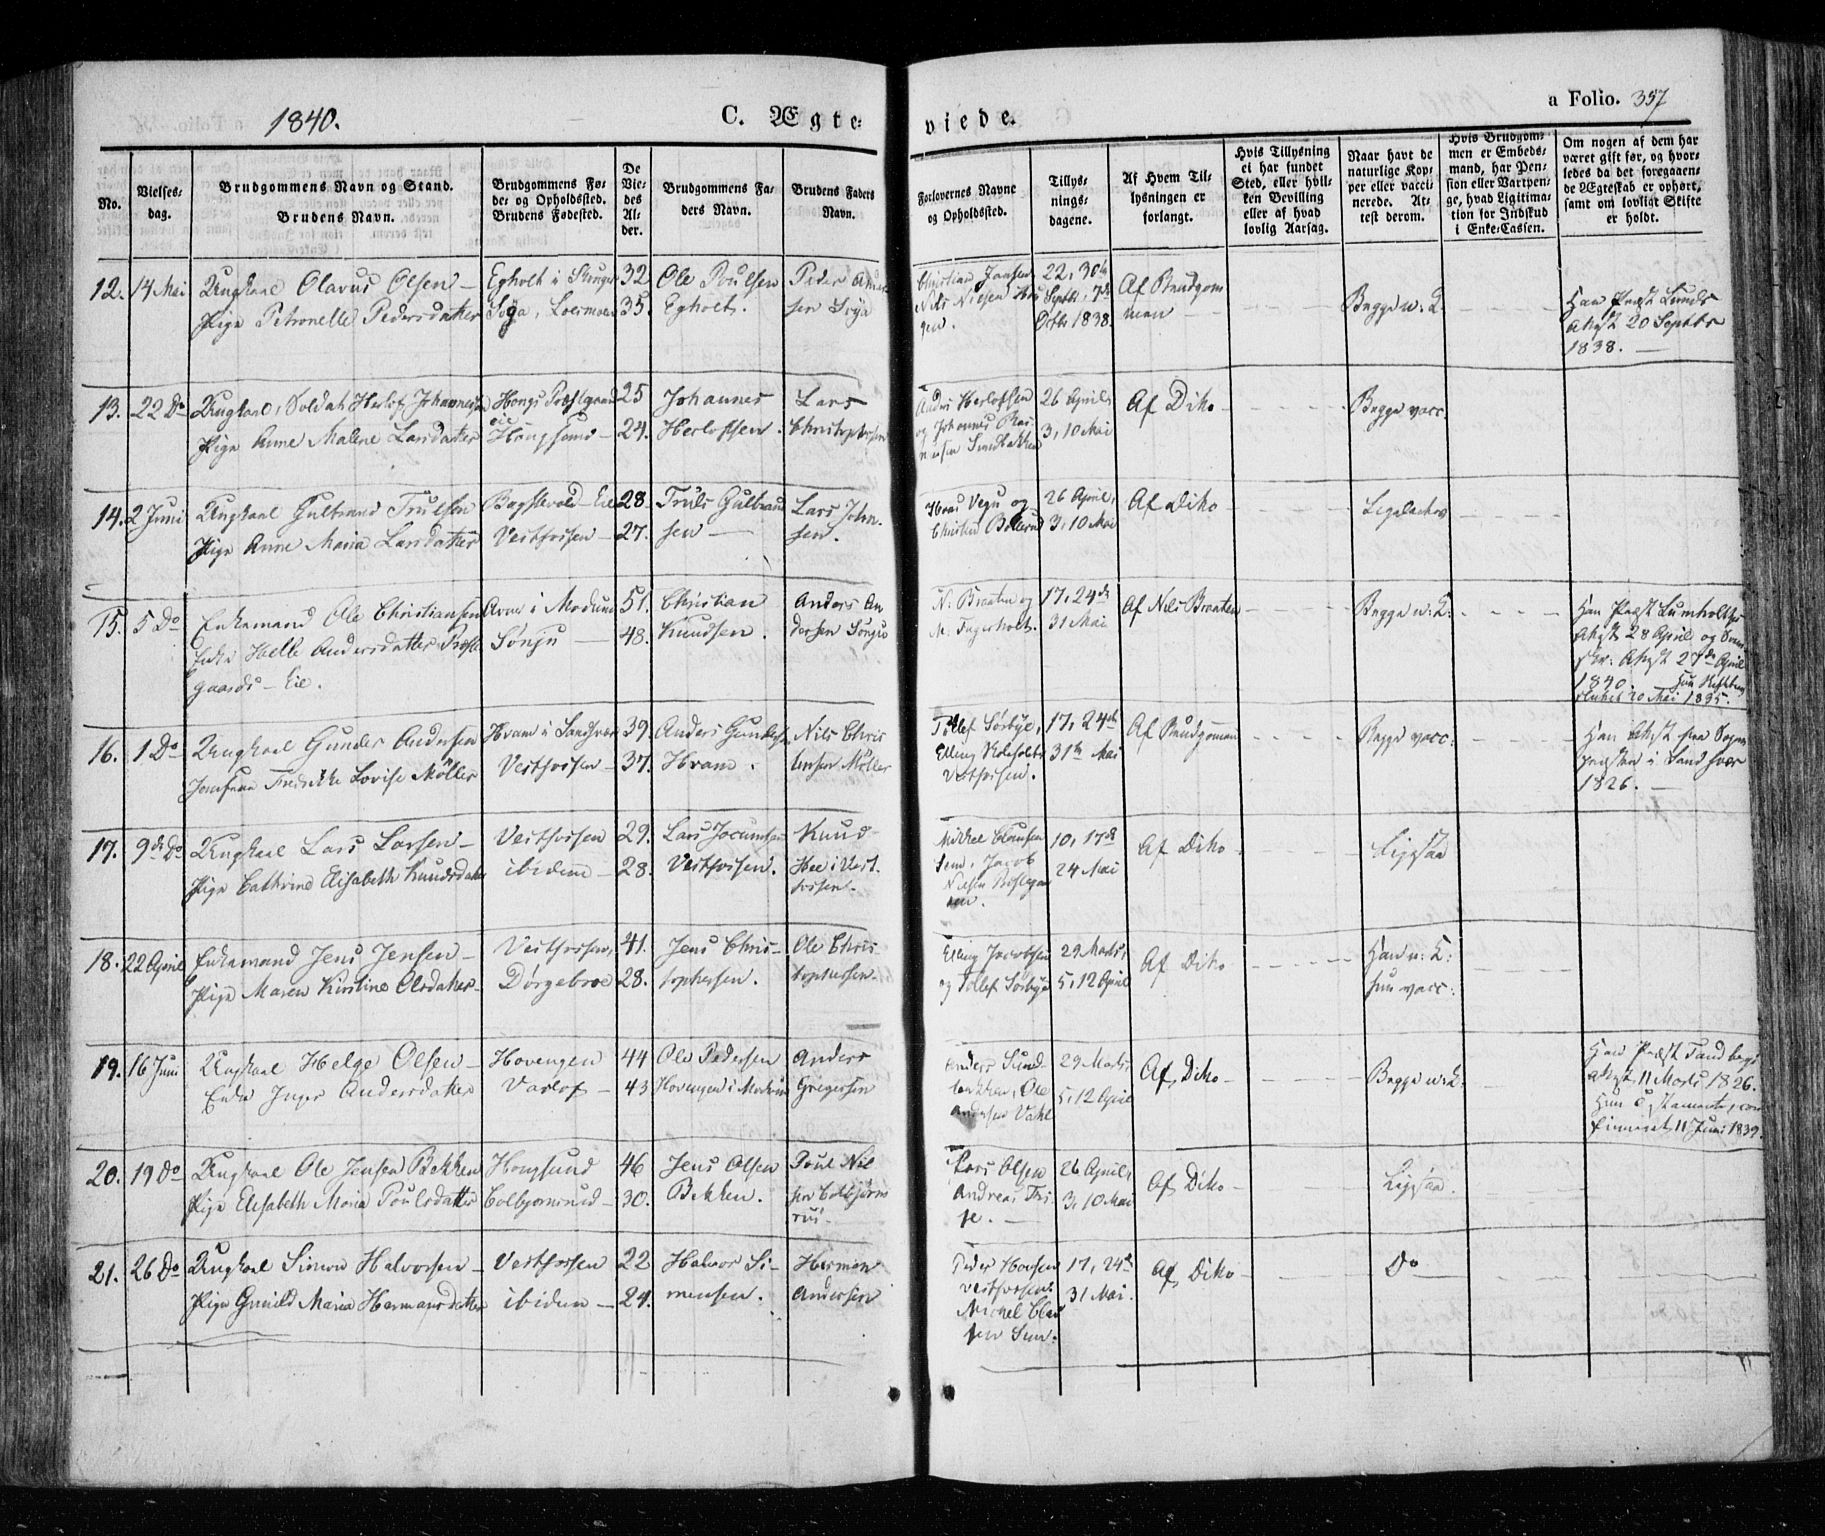 1840.
C. Ægte-
viede.
a Folio. 357
No.
Vielses-
dag.
Brudgommens Navn og Stand.
Brudens Navn.
Brudgommens Fø-
de- og Opholdssted.
Brudens Fødested.
De
Vie-
des
Al-
der.
Brudgommens Fa-
ders Navn.
Brudens Faders
Navn.
Forlovernes Navne
og Opholdssted.
Tillys-
nings-
dagene.
Af Hvem Til-
lysningen er
forlangt.
Hvis Tillysning
ei har fundet
Sted, eller hvil-
ken Bevilling
eller af hvad
lovlig Aarsag.
Naar havt de
naturlige Kop-
per eller vacci-
nerede. At-
test derom.
Hvis Brudgom-
men er Embeds-
mand, har Pen-
sion eller Vartpen-
ge, hvad Legitima-
tion for Indskud
i Enke-Cassen.
Om nogen af dem har
været gift før, og hvor-
ledes da det foregaaen-
de Ægteskab er ophørt,
samt om lovligt Skifte
er holdt.
12. 14 Mai
Ungkaal Olavus Olsen
Pige Petronelle Pedersdatter
Egholt i
32
35.
Ole Poulsen
Egholt.
Peder
sen
Christian Jansen
Nils Nielsen
22, 30te
Septbr, 7de
Octbr 1838.
Af Brudgom
men
Begge n: K.
Han Præst Lunds
Attest 20 Septbr
1838.
13. 22 Do
Ungkaal, Soldat Herlof Johannesen
Pige Anne Malene Larsdatter
Hougsund
25
24.
Johannes
Herlofsen.
Lars
Christophersen
Anders Herlofsen
og Johannes
26 April,
3, 10 Mai
Af Dito
Begge vacc.
14. 2 Juni
Ungkaal Gulbrand Trulsen
Pige Anne Maria Larsdatter
Eie
Vestfossen
28.
27.
Truls Gulbrand
sen
Lars John-
sen.
og
Christen
26 April,
3, 10 Mai
Af Dito
Ligeledes
15. 5 Do
Enkemand Ole Christiansen
Enke Helle Andersdatter Præste
gaards-Eie.
i Modum
51.
48.
Christian
Knudsen.
Anders An
dersen
N: Braaten og
M: Fagerholt.
17, 24de
31 Mai
Af Nils Braaten
Begge n: K:
Han Præst Lumholtzes
Attest 28 April og
Attest 27de April
1840.
20 Mai 1835.
16. 1 Do
Ungkaal Gunder Andersen
Jomfrue Fredrikke Lovise Møller
Hvam i Sandsvær
Vestfossen
39.
37.
Anders Gunders
Hvam.
Nils Chris
tensen Møller
Tollef Sørbye,
Elling
Vestfossen.
17, 24de
31te Mai
Af Brudgommen
Begge vacc:
Han Attest fra Sogne
præsten i Sandsvær
1826.
17. 9de Do
Ungkaal Lars Larsen
Pige Cathrine Elisabeth Knudsdatter
Vestfossen
ibidem
29.
28.
Lars
Vestfossen.
Knud
Hee i Vest-
fossen.
Mikkel Clausen
Sem, Jacob
Nielsen
10, 17de
24 Mai
Af Dito
Ligesaa
18. 22 April
Enkemand Jens Jensen
Pige Maren Kirstine Olsdatter
Vestfossen,
Dørgebroe
41.
28.
Jens Chris-
tophersen.
Ole Chris
tophersen.
Elling Jacobsen
og Tollef Sørbye
29 Marts,
5, 12 April
Af Dito
Han n: K:
hun vacc:
19. 16 Juni
Ungkaal Helge Olsen
Enke Inger Andersdatter
Hovengen
Varlof
44
43
Ole Pedersen
Hovengen i Modum
Anders
Gregersen
Anders
Ole
Andersen
29 Marts,
5, 12 April
Af Dito
Begge n: K:
Han Præst Tandbergs
Attest 11 Marts 1826.
Hun
11 Juni 1839.
20. 19 Do
Ungkaal Ole Jensen Bekken
Pige Elisabeth Maria Poulsdatter
Hougsund
Colbjornsrud
46
30.
Jens Olsen
Bekken.
Poul Niel
sen Colbjørns
rud.
Lars Olsen
Andreas
26 April,
3, 10 Mai
Af Dito
Ligesaa.
21. 26 Do
Ungkaal Simon Halvorsen
Pige Gunild Maria Hermansdatter
Vestfossen
ibidem
22
24.
Halvor Si-
mensen.
Herman
Andersen
Peder Hansen
Vestfossen.
Michel Clau
sen Sem.
17, 24de
31 Mai.
Af Dito
Do